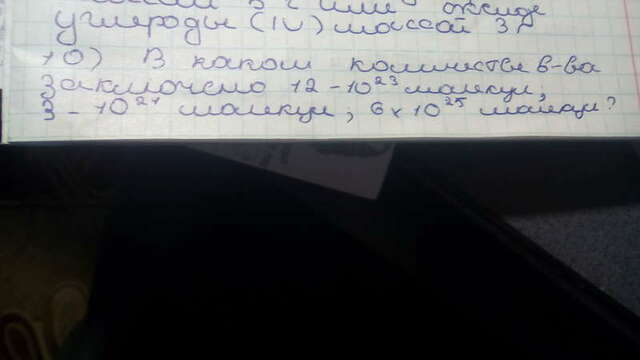 3 г или оксиде
углерода (IV) массой 3г
10) В каком количестве в-ва
заключено 12 - 10²³ молекул,
3 - 10²¹ молекул; 6 x 10²⁵ молекул?